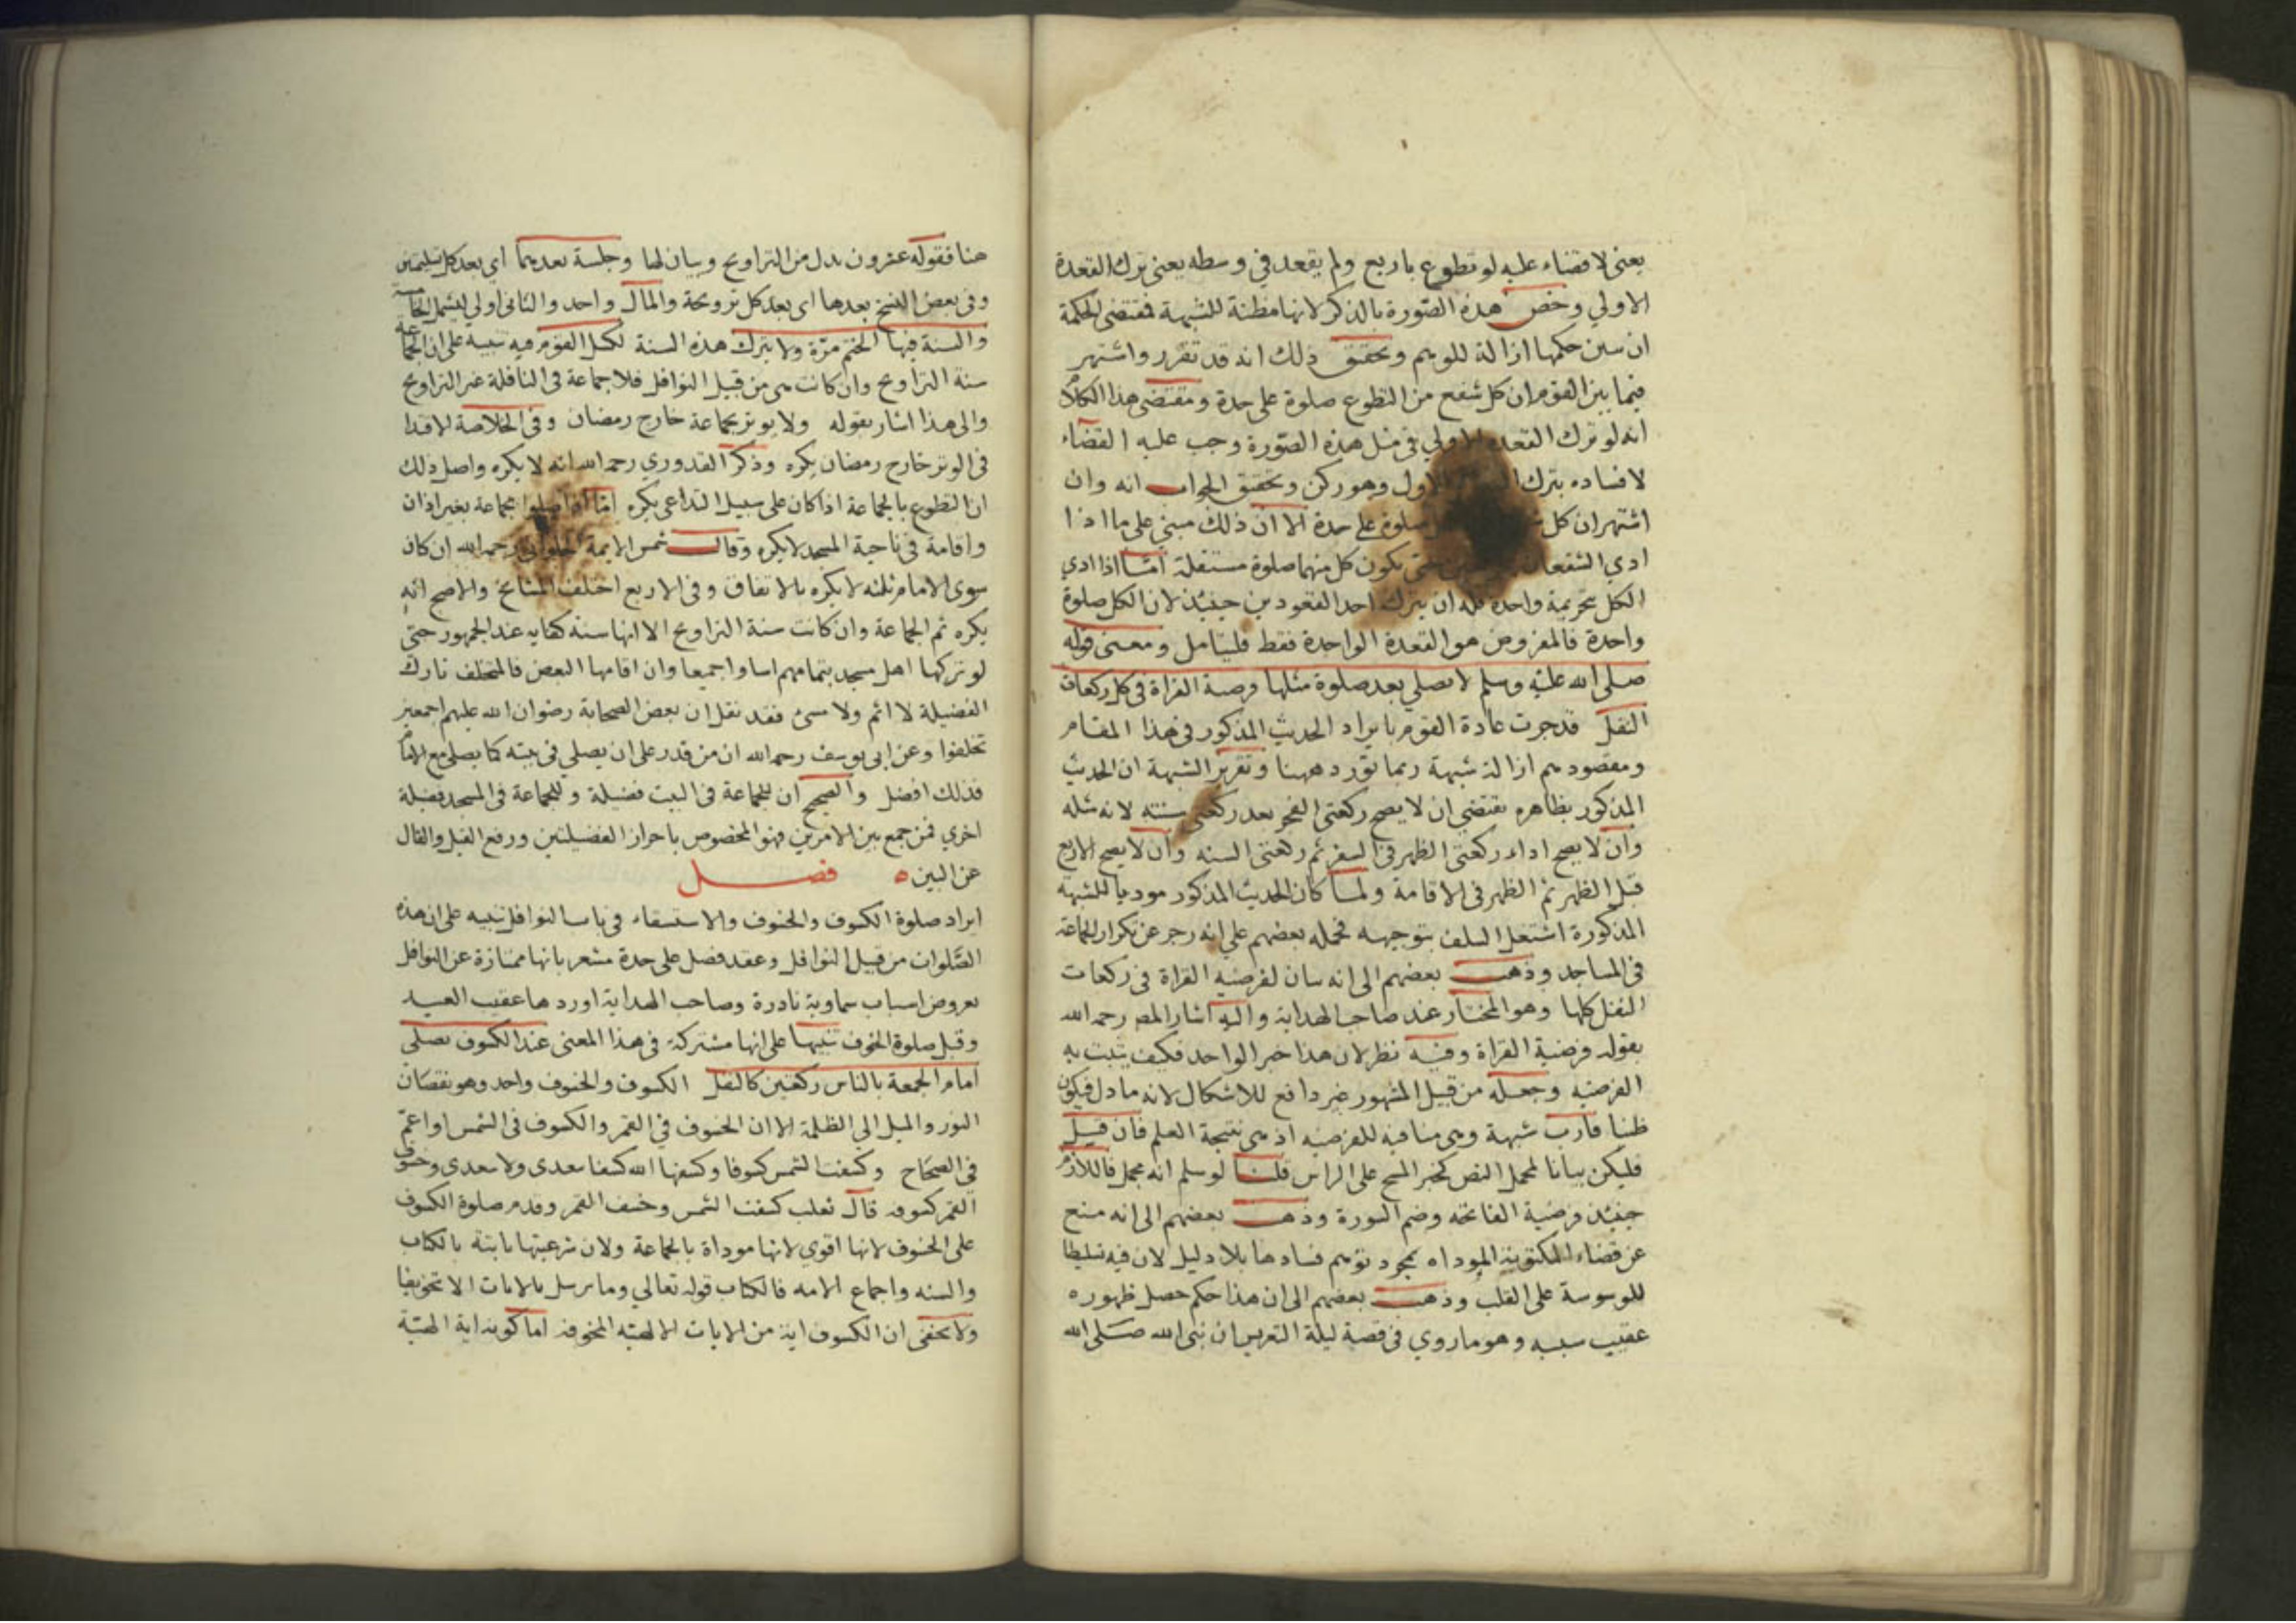 يعنى لا قضاء عليه لو تطوع باربع ولم يقعد في وسطه يعنى ترك القعدة
الاولي وخص هذه الصورة بالذكر لانها مظنة للشبهة فمقتضى الحكمة
ان سين حكمها ازالة للوهم وتحقيق ذلك انه قد تقرر واشتهر
فيما بين القوم ان كل شفع من التطوع صلوة على حدة ومقتضى هذا الكلام
انه لو ترك القعدة الاولي في مثل هذه الصورة وجب عليه القضاء
لافساده بترك الاول وهو ركن وتحقيق الجواب انه وان
اشتهر ان كل صلوة على حدة الا ان ذلك مبني على ما اذا
ادي الشفعان حتى يكون كل منهما صلوة مستقلة امّا اذا ادي
الكل بتحريمة واحدة فله ان يترك احد القعودين حينئذ لان الكل صلوة
واحدة فالمفروض هو القعدة الواحدة فقط فليتامل ومعنى قوله
صلى الله عليه وسلم لا يصلي بعد صلوة مثلها فرضية القراة في كل ركعات
النفل قد جرت عادة القوم بايراد الحديث المذكور في هذا المقام
ومقصودهم ازالة شبهة ربما تورد ههنا وتقرير الشبهة ان الحديث
المذكور بظاهره يقتضي ان لا يصح ركعتي الفجر بعد ركعتي سنته لانه مثله
وان لا يصح اداء ركعتي الظهر في السفر ثم ركعتى السنه وان لا يصح الاربع
قبل الظهر ثم الظهر في الاقامة ولما كان الحديث المذكور موديا للشبهة
المذكورة اشتغل السلف بتوجيهه فحمله بعضهم على انه زجر عن تكرار الجماعة
في المساجد وذهب بعضهم الى انه بيان لفرضيه القراة في ركعات
النفل كلها وهو المختار عند صاحب الهداية واليه اشار المص رحمه الله
بقوله فرضية القراة وفيه نظر لان هذا خبر الواحد فكيف يثبت به
الفرضيه وجعله من قبيل المشهور غير دافع للاشكال لانه ما دل فيكون
ظنا قارب شبهة وهي منافيه للفرضيه اذ هي نتيجة العلم فان قيل
فليكن بيانا لمجمل النص كخبر المسح على الراس قلنا لو سلم انه مجمل فاللازم
حينئذ فرضية الفاتحه وضم السورة وذهب بعضهم الى انه منع
عن قضاء المكتوبة الموداه بمجرد توهم فسادها بلا دليل لان فيه تسليطا
للوسوسة على القلب وذهب بعضهم الى ان هذا حكم حصل ظهوره
عقيب سببه وهو ما روي في قصة ليلة التعريس ان نبي الله صلى الله
هنا فقوله عشرون بدل من التراويح وبيان لها وجلسة بعدهما اي بعد كل تسليمتين
وفي بعض النسخ بعدها اى بعد كل ترويحة والمآل واحد والثاني اولي ليشمل الخامسة
والسنة فيها الختم مرّة ولا يترك هذه السنة لكسل القوم فيه تنبيه على ان الجماعة
سنة التراويح وان كانت هي من قبيل النوافل فلا جماعة في النافلة غير التراويح
والى هذا اشار بقوله ولا يوتر بجماعة خارج رمضان وفى الخلاصة الاقتدا
في الوتر خارج رمضان يكره وذكر القدوري رحمه الله انه لا يكره واصل ذلك
ان التطوع بالجماعة اذا كان على سبيل التداعى يكره امّا اذا صلوا بجماعة بغير اذان
واقامة في ناحية المسجد لا يكره وقال شمس الايمة الحلواني رحمه الله ان كان
سوى الامام ثلثه لا يكره بالاتفاق وفى الاربع اختلف المشايخ والاصح انه
يكره ثم الجماعة وان كانت سنة التراويح الا انها سنة كفايه عند الجمهور حتى
لو تركها اهل مسجد بتمامهم اساوا جميعا وان اقامها البعض فالمتخلف تارك
الفضيلة لا اثم ولا مسئ فقد نقل ان بعض الصحابة رضوان الله عليهم اجمعين
تخلفوا وعن ابى يوسف رحمه الله ان من قدر على ان يصلي في بيته كما يصلى مع الامام
فذلك افضل والصحيح ان للجماعة في البيت فضيلة وللجماعة في المسجد فضيلة
اخري فمن جمع بين الامرين فهو المخصوص باحراز الفضيلتين ورفع القيل والقال
عن البين ٥ فصل
ايراد صلوة الكسوف والخسوف والاستسقاء في باب النوافل تنبيه على ان هذه
الصلوات من قبيل النوافل وعقد فصل على حدة مشعر بانها ممتازة عن النوافل
بعروض اسباب سماوية نادرة وصاحب الهداية اوردها عقيب العيد
وقبل صلوة الخوف تنبيها على انها مشتركة في هذا المعنى عند الكسوف يصلى
امام الجمعة بالناس ركعتين كالنفل الكسوف والخسوف واحد وهو نقصان
النور والميل الى الظلمة الا ان الخسوف في القمر والكسوف في الشمس او اعم
في الصحاح وكسفت الشمس كسوفا وكسفها الله كسفا يتعدى ولا يتعدى وخسوف
القمر كسوفه قال ثعلب كسفت الشمس وخسف القمر وقدم صلوة الكسوف
على الخسوف لانها اقوي لانها موداة بالجماعة ولان شرعيتها ثابتة بالكتاب
والسنه واجماع الامه فالكتاب قوله تعالي وما نرسل بالايات الا تخويفا
ولا يخفى ان الكسوف اية من الايات الالهيه المخوفه اما كونه اية الهيّة